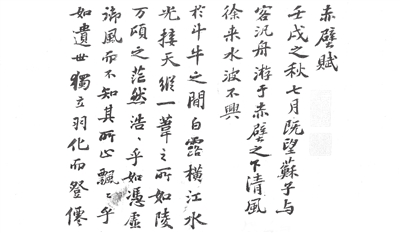 赤壁賦
壬戌之秋七月既望蘇子与
客汎舟游于赤壁之下清風
徐来水波不興
於斗牛之間白露橫江水
光接天縱一葦之所如陵
万頃之茫然浩〻乎如馮虛
御風而不知其所止飄〻乎
如遺世獨立羽化而登僊